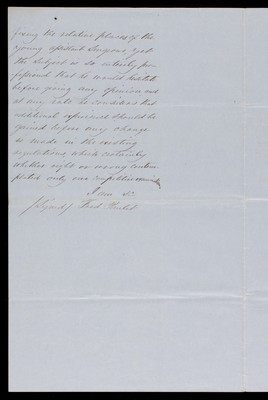 giving the relative places of the
young assistant Surgeons, yet
the subject is so entirely pro-
fessional that he would hesitate
before giving any opinion and
at any rate he considers that
additional experience should be
gained before any change
is made in the existing
regulations, which certainly
whether right or wrong contem-
plated only one competitive
I am &c
(Signed) Fred